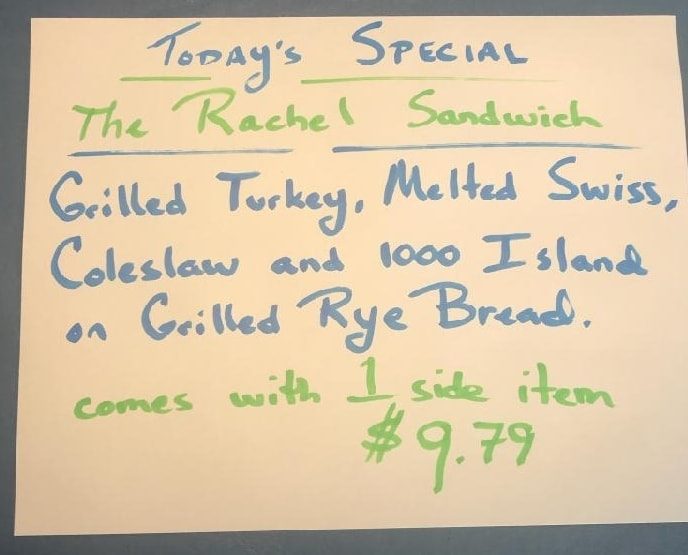 Today's Special
The Rachel Sandwich
Grilled Turkey, Melted Swiss,
Coleslaw and 1000 Island
on Grilled Rye Bread.
comes with 1 side item
$9.79